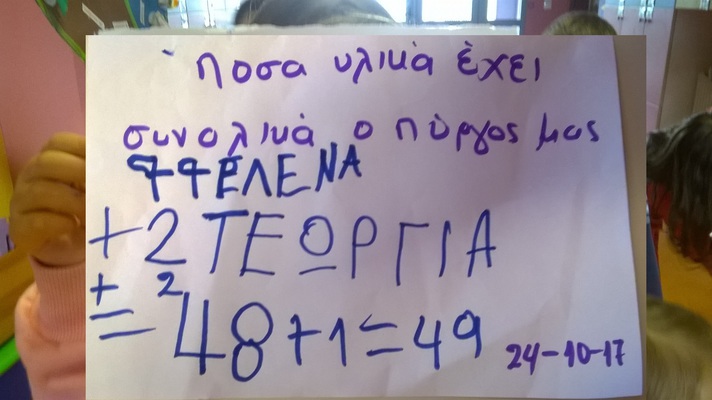 ποσα υλικά έχει
συνολικά ο πύργος μας
44 ΕΛΕΝΑ
+2 ΓΕΩΡΓΙΑ
+2
=48+1=49
24-10-17